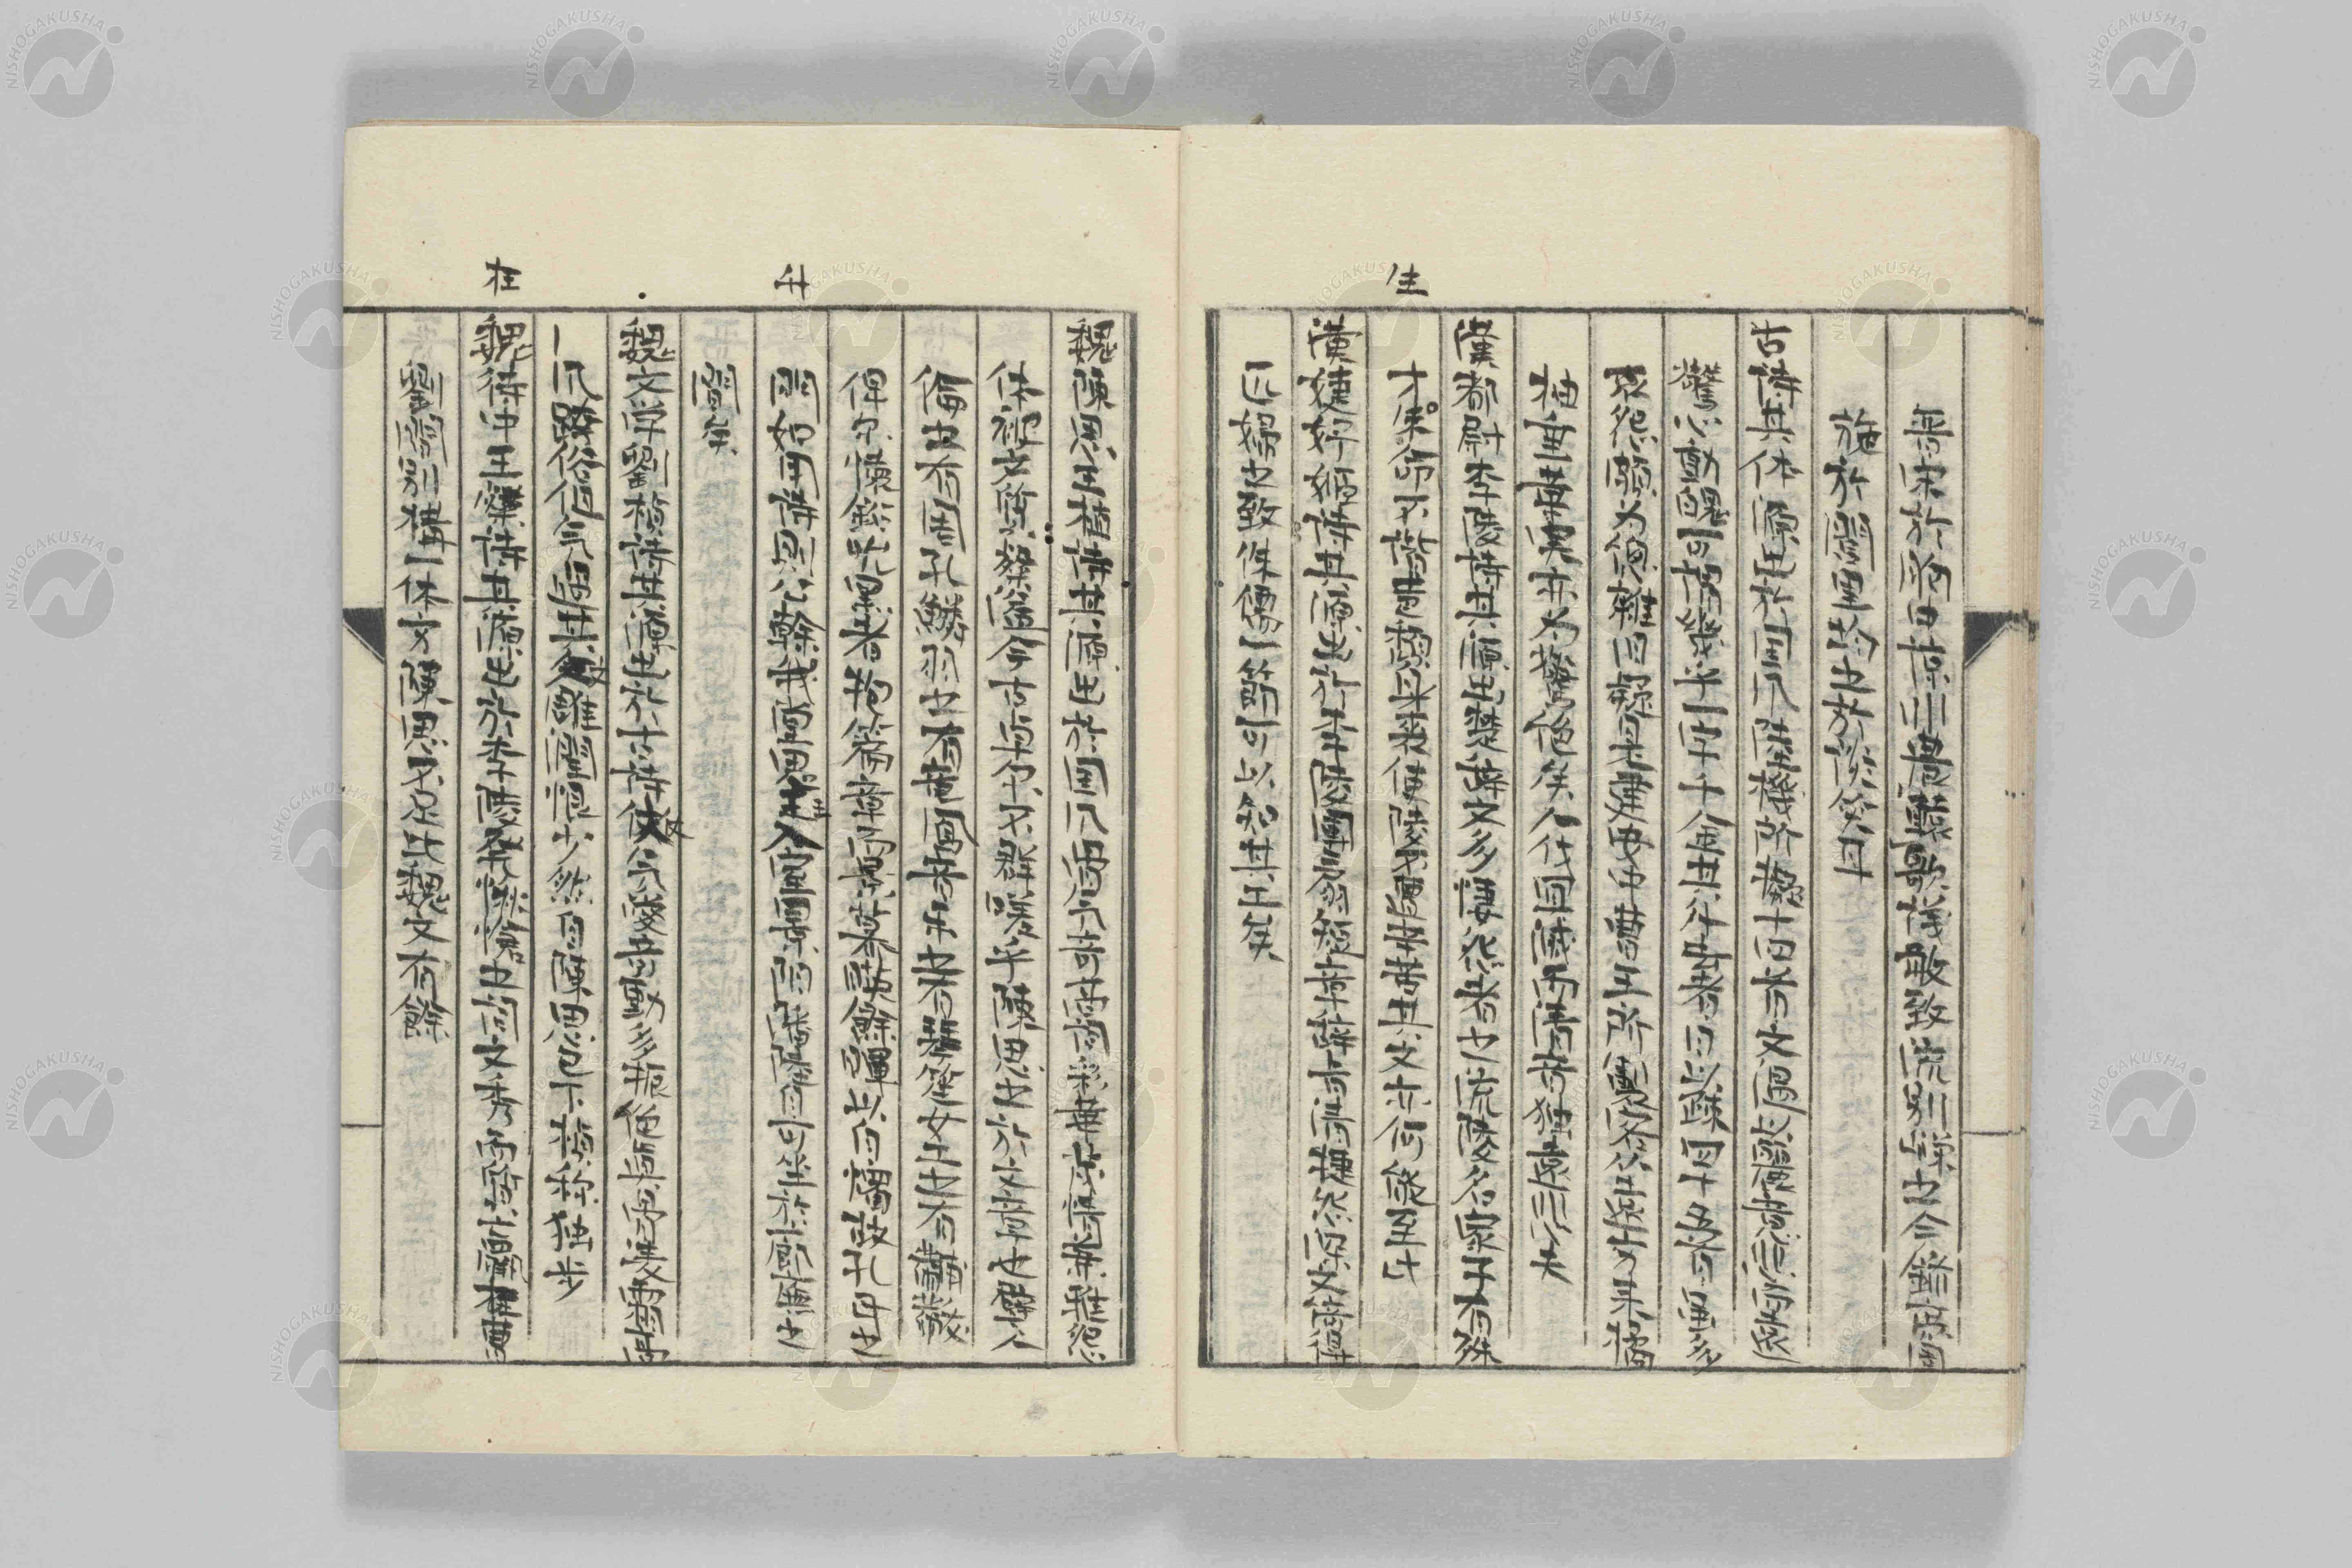 晉宋於胷中諒非農轅歌議敢致流別嶸之今錄庶周
旋於閭里均之於談笑耳
古詩其体源出於國風陸機所擬十四首文溫以麗意悲而遠
驚心動魄可謂幾乎一字千金其外去者日以疎四十五首雖多
哀怨頗為總雜舊疑是建安中曹王所製客從遠方來橘
柚垂華實亦為驚絕矣人代冥滅而清音獨遠悲夫
生
漢都尉李陵詩其源出於楚辞文多悽怨者之流陵名家子有殊
才生命不諧聲頹身喪使陵不遭辛苦其文亦何能至此
漢婕妤班姬詩其源出於李陵團扇短章辞旨清捷怨深文綺得
匹婦之致侏儒一節可以知其工矣
魏陳思王植詩其源出於國風骨氣奇高詞彩華茂情兼雅怨
体被文質粲溢今古卓尔不群嗟乎陳思之於文章也譬人
倫之有周孔鱗羽之有龍鳳音樂之有琴笙女工之有黼黻
俾尔懷鉛吮墨者抱篇章而景慕映餘暉以自燭故孔氏之
升
門如用詩則公幹升堂思王入室景陽潘陸自可坐於廊廡之
間矣
魏文學劉楨詩其源出於古詩仗氣愛奇動多振絕真骨凌霜高
風跨俗但氣過其文雕潤恨少然自陳思已下楨稱獨步
在
魏侍中王粲詩其源出於李陵發愀愴之詞文秀而質羸在曹
劉間別構一体方陳思不足比魏文有餘